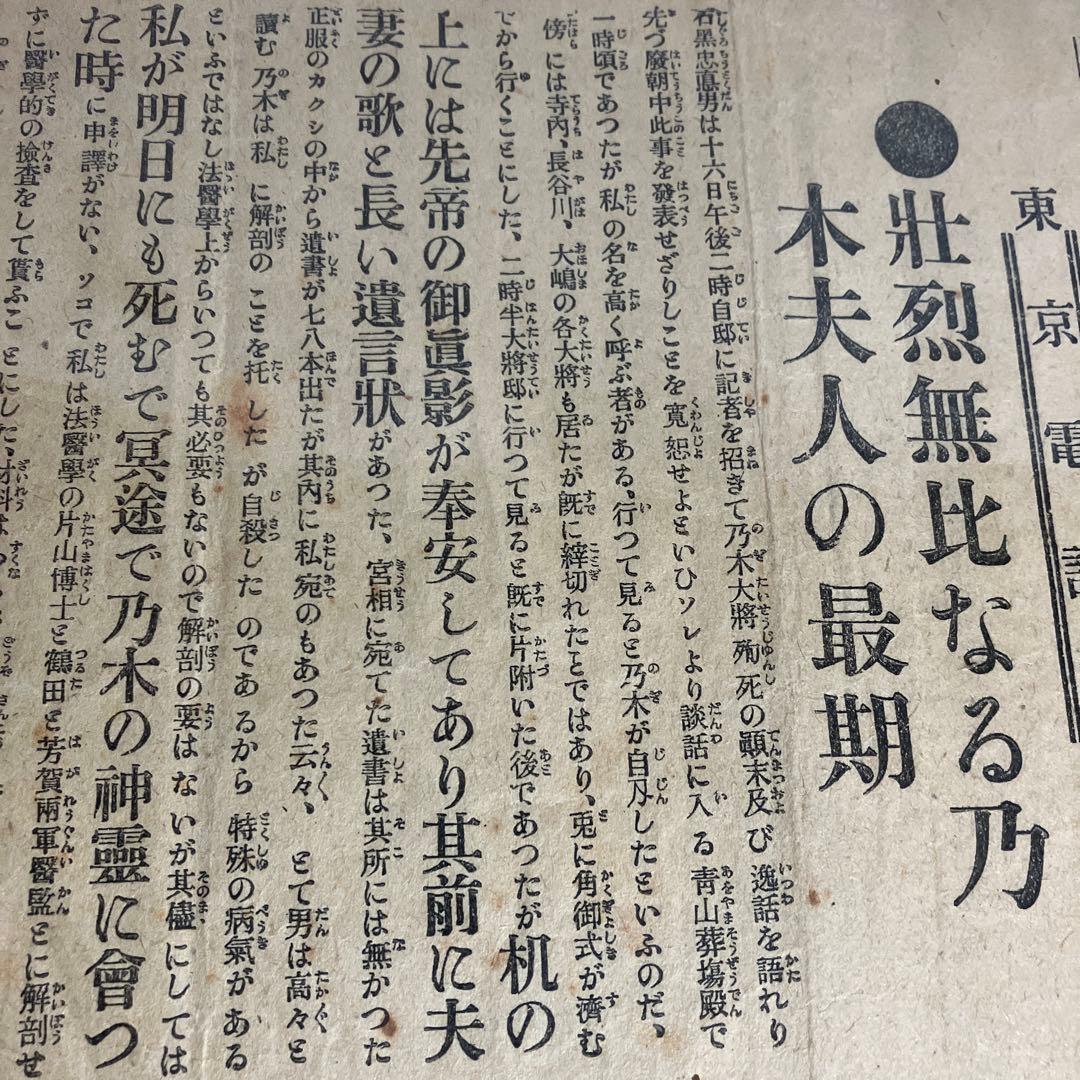 東京電話
●壯烈無比なる乃
木夫人の最期
石黑忠悳男は十六日午後二時自邸に記者を招きて乃木大將殉死の顚末及び逸話を語れり
先づ廢朝中此事を發表せざりしことを寬恕せよといひソレより談話に入る青山葬場殿で
一時頃であつたが私の名を高く呼ぶ者がある、行つて見ると乃木が自刄したといふのだ、
傍には寺內、長谷川、大嶋の各大將も居たが旣に縡切れたとではあり、兎に角御式が濟む
でから行くことにした、二時半大將邸に行つて見ると旣に片附いた後であつたが机の
上には先帝の御眞影が奉安してあり其前に夫
妻の歌と長い遺言狀があつた、宮相に宛てた遺書は其所には無かつた
正服のカクシの中から遺書が七八本出たが其內に私宛のもあつた云々、とて男は高々と
讀む乃木は私に解剖のことを托したが自殺したのであるから特殊の病氣がある
といふではなし法醫學上からいつても其必要もないので解剖の要はないが其儘にしては
私が明日にも死むで冥途で乃木の神靈に會つ
た時に申譯がない、ソコで私は法醫學の片山博士と鶴田と芳賀兩軍醫監とに解剖せ
ずに醫學的の撿査をして貰ふことにした、材料は